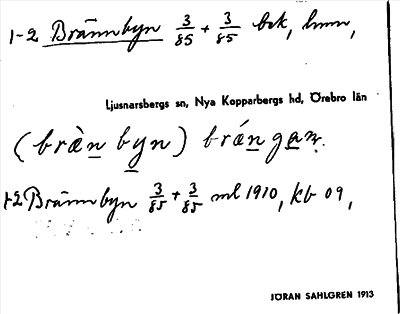 1-2 Brännbyn 3/85 + 3/85 bok, hmn,
Ljusnarsbergs sn, Nya Kopparbergs hd, Örebro län
(bràn byn) brángan.
1-2 Brännbyn 3/85 + 3/85 ml 1910, kb 09,
JÖRAN SAHLGREN 1913